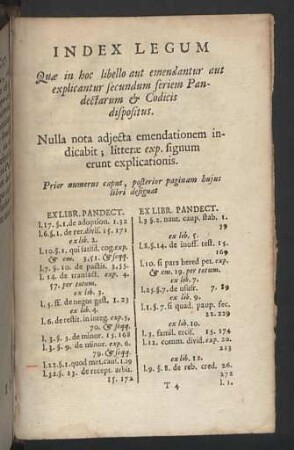 INDEX LEGUM
Quæ in hoc libello aut emendantur aut
explicantur secundum seriem Pan-
dectarum & Codicis
dispositus.
Nulla nota adjecta emendationem in-
dicabit; litteræ exp. signum
erunt explicationis.
Prior numerus caput, posterior paginam hujus
libri designat
EX LIBR. PANDECT.
l. 17. §. 1. de adoption. 1. 32
l. 6. §. 1. de rer. divis. 15. 171
ex lib. 2.
l. 10. §. 1. qui satisd. cog. exp.
& em. 3. 51. & seqq.
l. 7. §. 10. de pactis. 3. 55.
l. 14. de transact. exp. 4.
57. per totum.
ex lib. 3.
l. 5. ff. de negot. gest. 1. 23
ex lib. 4.
l. 6. de restit. in integ. exp. 5.
70. & seqq.
l. 3. §. 3. de minor. 15. 168
l. 3. §. 9. de minor. exp. 6.
79. & seqq.
l. 22. §. 1. quod met. caus. 1. 29
l. 32. §. 13. de recept. arbit.
15. 172
EX LIBR. PANDECT.
l. 3 §. 2. naut. caup. stab. 1.
39
ex lib. 5.
l. 8. §. 14. de inoff. test. 15.
169
l. 10. si pars hered pet. exp.
& em. 19. per totum.
ex lib. 7.
l. 25. §. 7. de usufr. 7. 89
ex lib. 9.
l. 1. §. 7. si quad. paup. fec.
21. 229
ex lib. 10.
l. 3. famil. ercisc. 15. 174
l. 12. comm. divid. exp. 20.
223
ex lib. 12.
l. 9. §. 8. de reb. cred. 26.
272
T 4
l. 1.